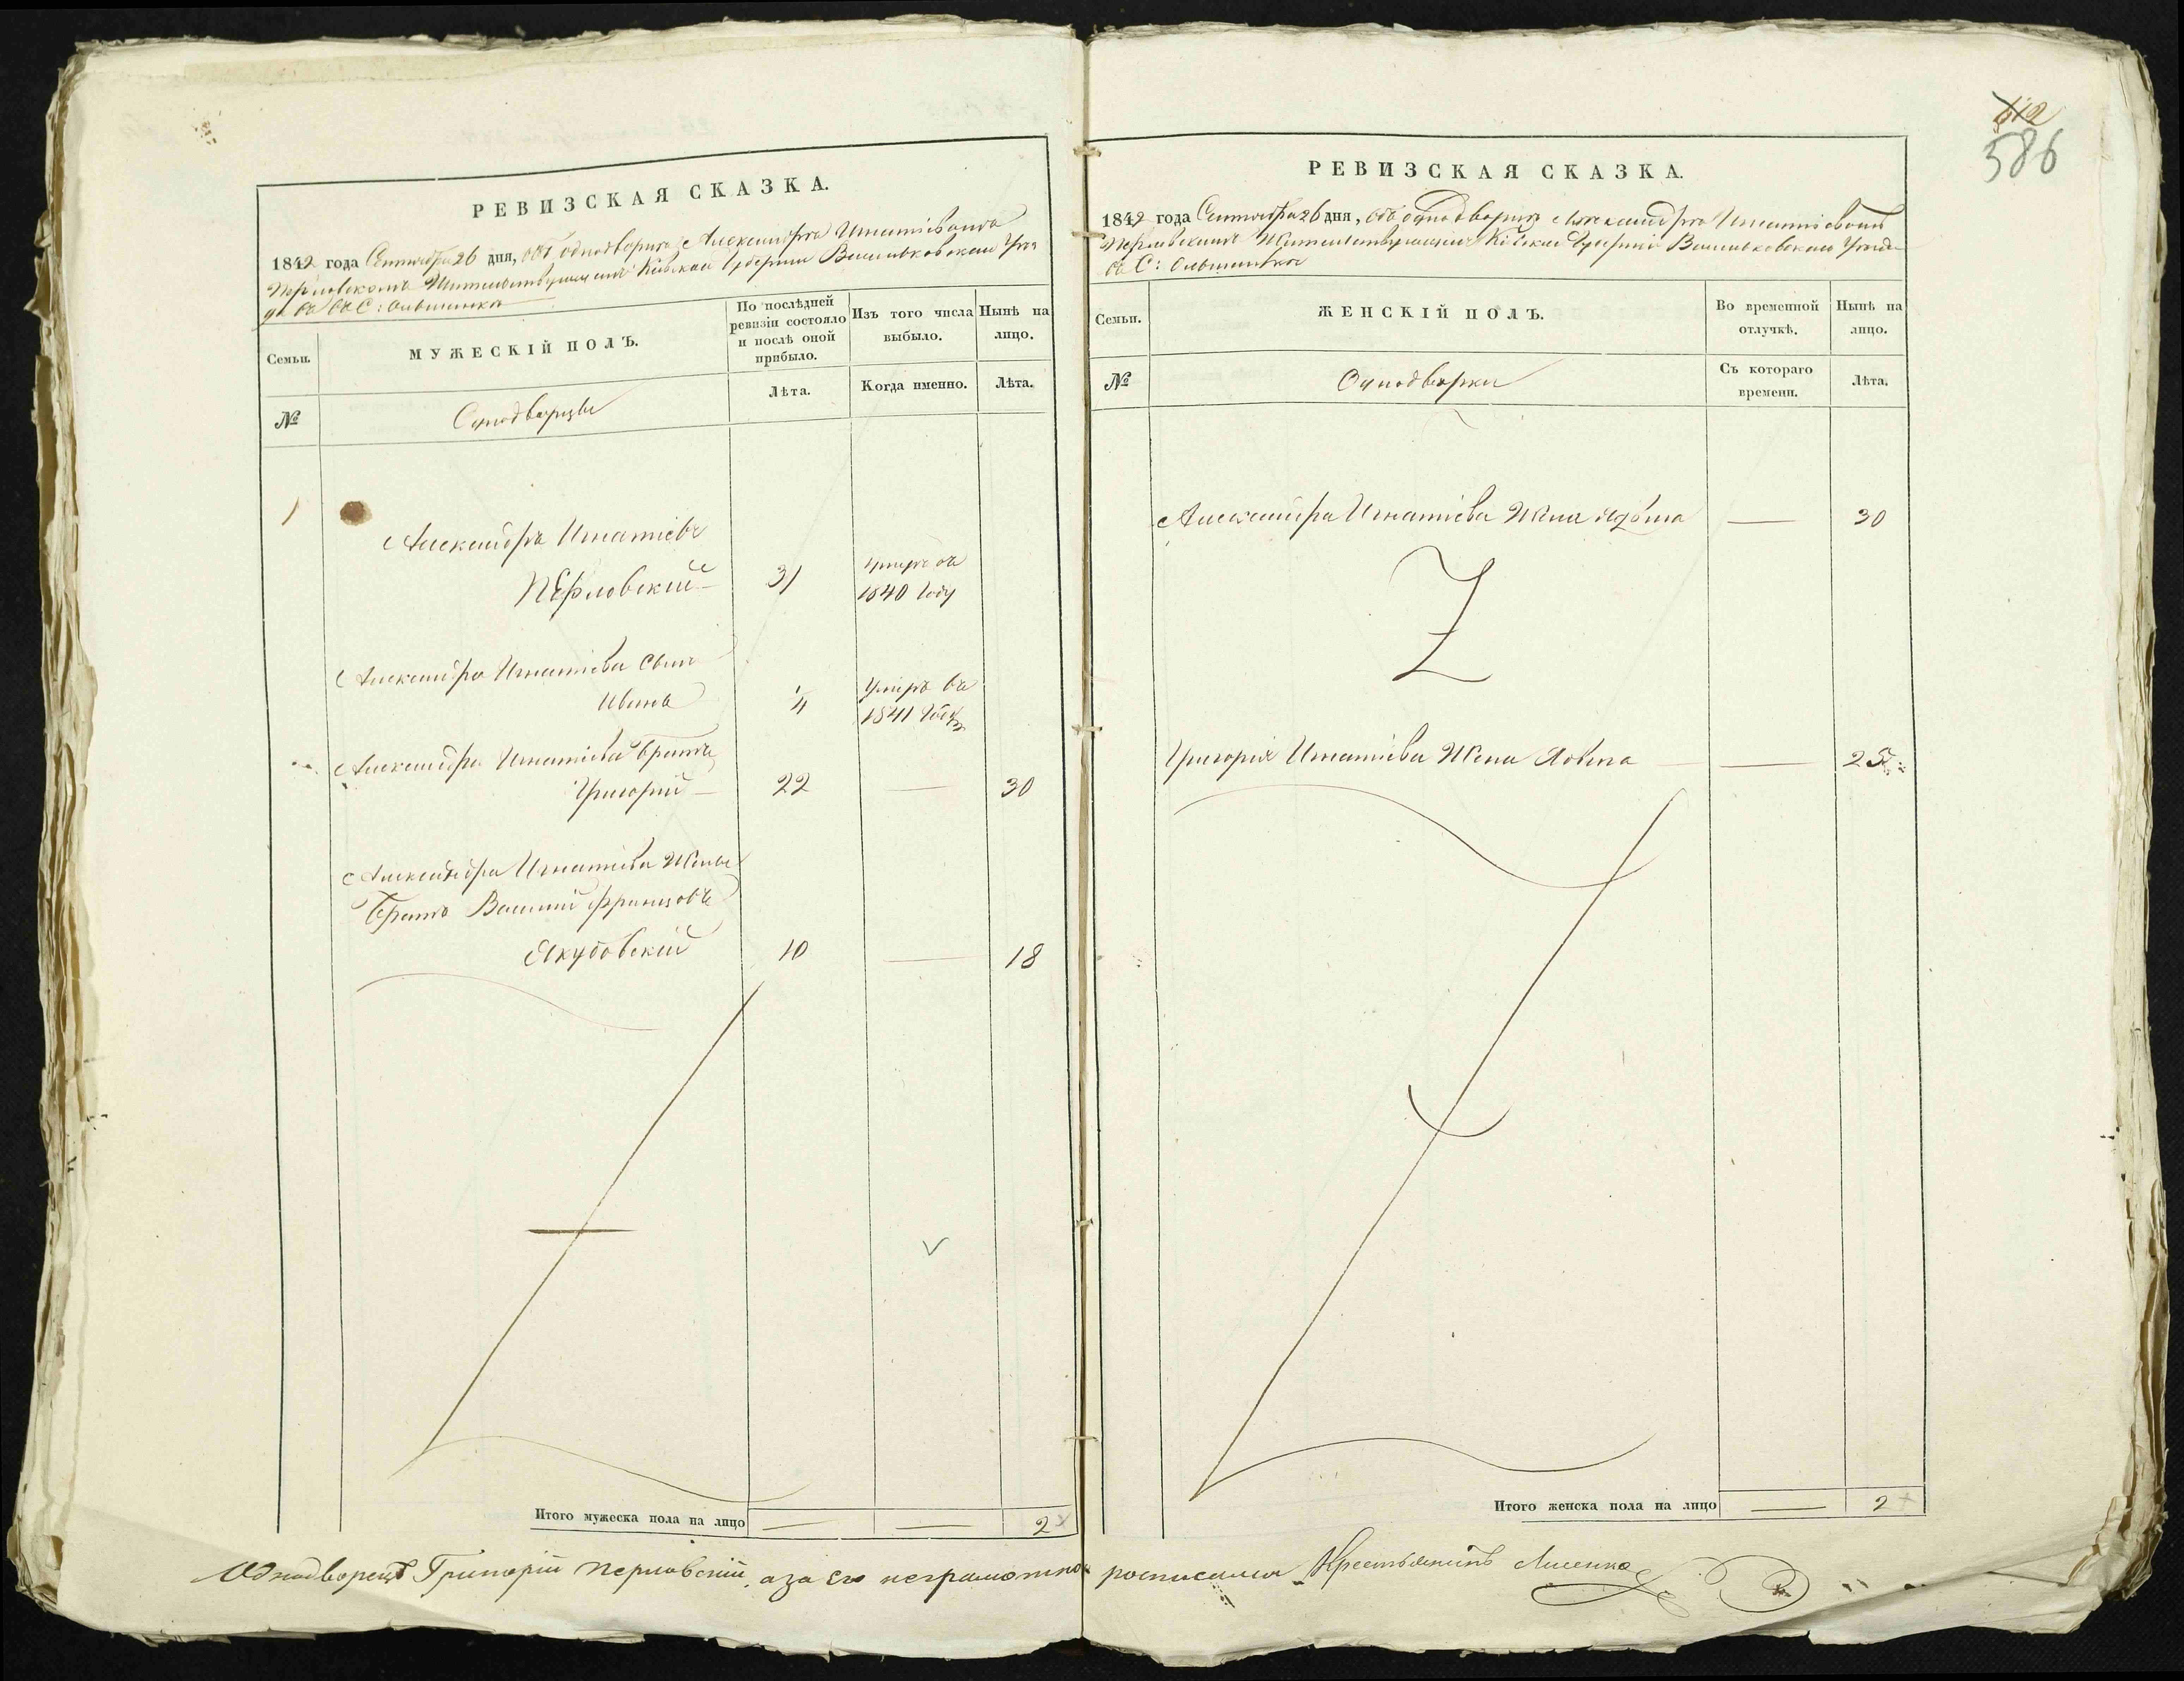 РЕВИЗСКАЯ СКАЗКА.
1842 года Сентября 26 дня, объ однодворцѣ Александрѣ Игнатіевомъ
Перловскомъ Жительствующемъ Кіевской Губерніи Васильковскаго Уез
да въ С: Ольшанкѣ
Семьи.
МУЖЕСКІЙ ПОЛЪ.
По послѣдней
ревизіи состояло
и послѣ оной
прибыло.
Изъ того числа
выбыло.
Нынѣ на
лицо.
№
Однодворцы
Лѣта.
Когда именно.
Лѣта.
1
Александръ Игнатіевъ
Перловскій 31 умеръ въ
1840 Году
Александра Игнатіева Сынъ
Иванъ 1/4 Умеръ въ
1841 Году
Александра Игнатіева Братъ
Григорій 22 — 30
Александра Игнатіева Жены
Братъ Василій Францовъ
Якубовскій 10 — 18
Итого мужеска пола на лицо — — 2
612
586
РЕВИЗСКАЯ СКАЗКА.
1842 года Сентября 26 дня, объ однодворцѣ Александрѣ Игнатіевомъ
Перловскомъ Жительствующемъ Кіевской Губерніи Васильковскаго Уезда
въ С: Ольшанкѣ
Семьи.
ЖЕНСКІЙ ПОЛЪ.
Во временной
отлучкѣ.
Нынѣ на
лицо.
№
Однодворки
Съ котораго
времени.
Лѣта.
Александра Игнатіева Жена — 30
Григорія Игнатіева Жена — 25
Итого женска пола на лицо — 2
Однодворецъ Григорій Перловскій, а за его неграмотность росписался Крестьянинъ Лисенко